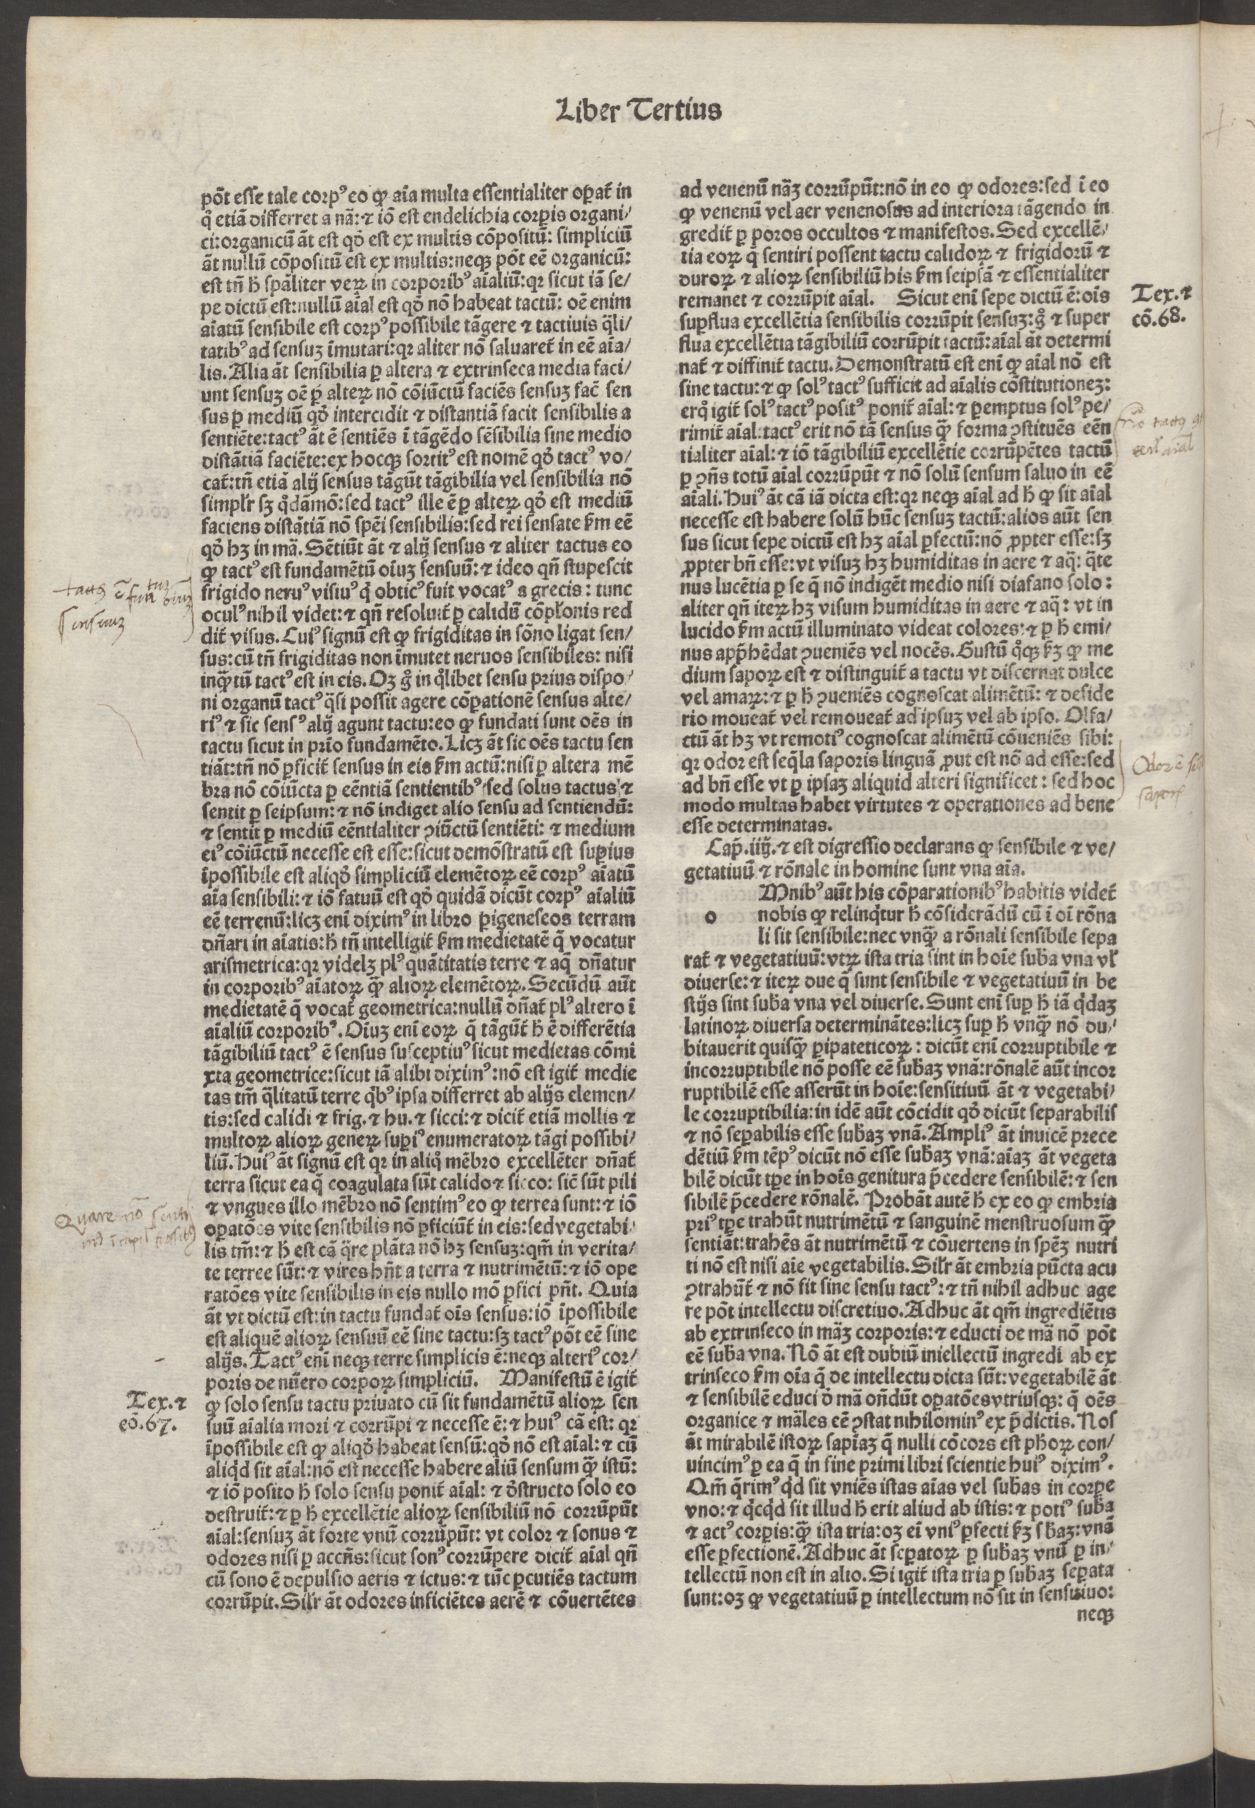 Liber Tertius
põt esse tale corpꝰ eo ꝙ aĩa multa essentialiter oꝑat̃ in
q̊ etiã differret a nã: ⁊ iõ est endelichia corꝑis organi⸗
ci: organicũ ãt est qđ est ex multis cõpositũ: simpliciũ
ãt nullũ cõpositũ est ex multis: neqꝫ põt eẽ organicũ:
est tñ h̃ spãliter verꝝ in corporibꝰ aĩaliũ: qꝛ sicut iã se⸗
pe dictũ est: nullũ aĩal est qđ nõ habeat tactũ: oẽ enim
aĩatũ sensibile est corpꝰ possibile tãgere ⁊ tactiuis q̃li⸗
tatibꝰ ad sensuꝫ ĩmutari: qꝛ aliter nõ saluaret̃ in eẽ aĩa⸗
lis. Alia ãt sensibilia ꝑ altera ⁊ extrinseca media faci⸗
unt sensuꝫ oẽ ꝑ alterꝝ nõ cõiũctũ faciẽs sensuꝫ faẽ sen
sus ꝑ mediũ qđ intercidit ⁊ distantiã facit sensibilis a
sentiẽte: tactꝰ ãt ẽ sentiẽs ĩ tãgẽdo sẽsibilia sine medio
distãtiã faciẽte: ex hocqꝫ sortitꝰ est nomẽ qđ tactꝰ vo⸗
cat̃: tñ etiã alij sensus tãgũt tãgibilia vel sensibilia nõ
simplr̃ sꝫ q̊dãmõ: sed tactꝰ ille ẽ ꝑ alterꝝ qđ est mediũ
faciens distãtiã nõ spẽi sensibilis: sed rei sensate ẜm eẽ
qđ hꝫ in mã. Sẽtiũt ãt ⁊ alij sensus ⁊ aliter tactus eo
ꝙ tactꝰ est fundamẽtũ oĩuꝫ sensuũ: ⁊ ideo qñ stupescit
frigido neruꝰ visiuꝰ q̊ obticꝰ fuit vocatꝰ a grecis: tunc
oculꝰ nihil videt: ⁊ qñ resoluit̃ ꝑ calidũ cõplõnis red
dit̃ visus. Cuiꝰ signũ est ꝙ frigiditas in sõno ligat sen⸗
sus: cũ tñ frigiditas non ĩmutet neruos sensibiles: nisi
inq̃tũ tactꝰ est in eis. Oꝫ g̊ in q̊libet sensu prius dispo⸗
ni organũ tactꝰ q̃si possit agere cõꝑationẽ sensus alte⸗
riꝰ ⁊ sic sensꝰ alij agunt tactu: eo ꝙ fundati sunt oẽs in
tactu sicut in prĩo fundamẽto. Licꝫ ãt sic oẽs tactu sen
tiãt: tñ nõ ꝑficit̃ sensus in eis ẜm actũ: nisi ꝑ altera mẽ
bra nõ cõiũcta ꝑ eẽntiã sentientibꝰ: sed solus tactus ⁊
sentit ꝑ seipsum: ⁊ nõ indiget alio sensu ad sentiendũ:
⁊ sentit ꝑ mediũ eẽntialiter ꝯiũctũ sentiẽti: ⁊ medium
eiꝰ cõiũctũ necesse est esse: sicut demõstratũ est suꝑius
ĩpossibile est aliqđ simpliciũ elemẽtoꝝ eẽ corpꝰ aĩatũ
aĩa sensibili: ⁊ iõ fatuũ est qđ quidã dicũt corpꝰ aĩaliũ
eẽ terrenũ: licꝫ enĩ diximꝰ in libro ꝑigeneseos terram
dñari in aĩatis: h̃ tñ intelligit̃ ẜm medietatẽ q̃ vocatur
arismetrica: qꝛ videlꝫ plꝰ quãtitatis terre ⁊ aq̃ dñatur
in corporibꝰ aĩatoꝝ q̃ꝫ alioꝝ elemẽtoꝝ. Secũdũ aũt
medietatẽ q̃ vocat̃ geometrica: nullũ dñat̃ plꝰ altero ĩ
aĩaliũ corporibꝰ. Oĩuꝫ enĩ eoꝝ q̃ tãgũt̃ h̃ ẽ differẽtia
tãgibiliũ tactꝰ ẽ sensus susceptiuꝰ sicut medietas cõmi
xta geometrice: sicut iã alibi diximꝰ: nõ est igit̃ medie
tas tm̃ q̃litatũ terre q̃bꝰ ipsa differret ab alijs elemen⸗
tis: sed calidi ⁊ frig. ⁊ hu. ⁊ sicci: ⁊ dicit̃ etiã mollis ⁊
multoꝝ alioꝝ generꝝ suꝑiꝰ enumeratoꝝ tãgi possibi⸗
liũ. Huiꝰ ãt signũ est qꝛ in aliq̊ mẽbro excellẽter dñat̃
terra sicut ea q̃ coagulata sũt calido ⁊ sicco: sic̃ sũt pili
⁊ vngues illo mẽbro nõ sentimꝰ eo ꝙ terrea sunt: ⁊ iõ
oꝑatões vite sensibilis nõ ꝑficiũt̃ in eis: sed vegetabi⸗
lis tm̃: ⁊ h̃ est cã q̃re plãta nõ hꝫ sensuꝫ: qm̃ in verita⸗
te terree sũt: ⁊ vires hñt a terra ⁊ nutrimẽtũ: ⁊ iõ ope
ratões vite sensibilis in eis nullo mõ ꝑfici pñt. Quia
ãt vt dictũ est: in tactu fundat̃ oĩs sensus: iõ ĩpossibile
est aliquẽ alioꝝ sensuũ eẽ sine tactu: sꝫ tactꝰ põt eẽ sine
alijs. Tactꝰ enĩ neqꝫ terre simplicis ẽ: neqꝫ alteriꝰ cor⸗
poris de nũero corpoꝝ simpliciũ. Manifestũ ẽ igit̃
ꝙ solo sensu tactu priuato cũ sit fundamẽtũ alioꝝ sen
suũ aĩalia mori ⁊ corrũpi ⁊ necesse ẽ: ⁊ huiꝰ cã est: qꝛ
ĩpossibile est ꝙ aliqđ habeat sensũ: qđ nõ est aĩal: ⁊ cũ
aliqd̃ sit aĩal: nõ est necesse habere aliũ sensum q̃ꝫ istũ:
⁊ iõ posito h̃ solo sensu ponit̃ aĩal: ⁊ đstructo solo eo
destruit̃: ⁊ ꝑ h̃ excellẽtie alioꝝ sensibiliũ nõ corrũpũt
aĩal: sensuꝫ ãt forte vnũ corrũpũt: vt color ⁊ sonus ⁊
odores nisi ꝑ accñs: sicut sonꝰ corrũpere dicit̃ aĩal qñ
cũ sono ẽ depulsio aeris ⁊ ictus: ⁊ tũc ꝑcutiẽs tactum
corrũpit. Silr̃ ãt odores inficiẽtes aerẽ ⁊ cõuertẽtes
Tex. ⁊
cõ. 67.
ad venenũ nãꝫ corrũpũt: nõ in eo ꝙ odores: sed ĩ eo
ꝙ venenũ vel aer venenosus ad interiora tãgendo in
gredit̃ ꝑ poros occultos ⁊ manifestos. Sed excellẽ⸗
tia eoꝝ q̃ sentiri possent tactu calidoꝝ ⁊ frigidorũ ⁊
duroꝝ ⁊ alioꝝ sensibiliũ his ẜm seipsã ⁊ essentialiter
remanet ⁊ corrũpit aĩal. Sicut enĩ sepe dictũ ẽ: oĩs
suꝑflua excellẽtia sensibilis corrũpit sensuꝫ: g̊ ⁊ super
flua excellẽtia tãgibiliũ corrũpit tactũ: aĩal ãt determi
nat̃ ⁊ diffinit̃ tactu. Demonstratũ est enĩ ꝙ aĩal nõ est
sine tactu: ⁊ ꝙ solꝰ tactꝰ sufficit ad aĩalis cõstitutioneꝫ:
erq̊ igit̃ solꝰ tactꝰ positꝰ ponit̃ aĩal: ⁊ ꝑemptus solꝰ pe⸗
rimit̃ aĩal: tactꝰ erit nõ tã sensus q̃ꝫ forma ꝯstituẽs eẽn
tialiter aĩal: ⁊ iõ tãgibiliũ excellẽtie corrũpẽtes tactũ
ꝑ ꝯñs totũ aĩal corrũpũt ⁊ nõ solũ sensum saluo in eẽ
aĩali. Huiꝰ ãt cã iã dicta est: qꝛ neqꝫ aĩal ad h̃ ꝙ sit aĩal
necesse est habere solũ hũc sensuꝫ tactũ: alios aũt sen
sus sicut sepe dictũ est hꝫ aĩal ꝑfectũ: nõ ꝓpter esse: sꝫ
ꝓpter bñ esse: vt visuꝫ hꝫ humiditas in aere ⁊ aq̃: q̃te
nus lucẽtia ꝑ se q̃ nõ indigẽt medio nisi diafano solo:
aliter qñ iterꝝ hꝫ visum humiditas in aere ⁊ aq̃: vt in
lucido ẜm actũ illuminato videat colores: ⁊ ꝑ h̃ emi⸗
nus apꝑhẽdat ꝯueniẽs vel nocẽs. Gustũ q̊qꝫ hꝫ ꝙ me
dium sapoꝝ est ⁊ distinguit̃ a tactu vt discernat dulce
vel amaꝝ: ⁊ ꝑ h̃ ꝯueniẽs cognoscat alimẽtũ: ⁊ deside
rio moueat̃ vel remoueat̃ ad ipsuꝫ vel ab ipso. Olfa⸗
ctũ ãt hꝫ vt remotiꝰ cognoscat alimẽtũ cõueniẽs sibi:
qꝛ odor est seq̃la saporis linguã ꝓut est nõ ad esse: sed
ad bñ esse vt ꝑ ipsaꝫ aliquid alteri significet: sed hoc
modo multas habet virtutes ⁊ operationes ad bene
esse determinatas.
Tex. ⁊
cõ. 68.
Caꝑ. iiij. ⁊ est digressio declarans ꝙ sensibile ⁊ ve⸗
getatiuũ ⁊ rõnale in homine sunt vna aĩa.
o
Mnibꝰ aũt his cõparationibꝰ habitis videt̃
nobis ꝙ relinq̃tur h̃ cõsiderãdũ cũ ĩ oĩ rõna
li sit sensibile: nec vnq̃ꝫ a rõnali sensibile sepa
rat̃ ⁊ vegetatiuũ: vtꝝ ista tria sint in hoĩe suba vna vl̃
diuerse: ⁊ iterꝝ due q̃ sunt sensibile ⁊ vegetatiuũ in be
stijs sint suba vna vel diuerse. Sunt enĩ suꝑ h̃ iã q̃daꝫ
latinoꝝ diuersa determinãtes: licꝫ suꝑ h̃ vnq̃ꝫ nõ du⸗
bitauerit quisq̃ꝫ ꝑipateticoꝝ: dicũt enĩ corruptibile ⁊
incorruptibile nõ posse eẽ subaꝫ vnã: rõnalẽ aũt incor
ruptibilẽ esse asserũt in hoĩe: sensitiuũ ãt ⁊ vegetabi⸗
le corruptibilia: in idẽ aũt cõcidit qđ dicũt separabilis
⁊ nõ seꝑabilis esse subaꝫ vnã. Ampliꝰ ãt inuicẽ prece
dẽtiũ ẜm tẽpꝰ dicũt nõ esse subaꝫ vnã: aĩaꝫ ãt vegeta
bilẽ dicũt tꝑe in hoĩs genitura p̃cedere sensibilẽ: ⁊ sen
sibilẽ p̃cedere rõnalẽ. Probãt autẽ h̃ ex eo ꝙ embria
priꝰ tꝑe trahũt nutrimẽtũ ⁊ sanguinẽ menstruosum q̃ꝫ
sentiãt: trahẽs ãt nutrimẽtũ ⁊ cõuertens in spẽꝫ nutri
ti nõ est nisi aĩe vegetabilis. Silr̃ ãt embria pũcta acu
ꝯtrahũt̃ ⁊ nõ fit sine sensu tactꝰ: ⁊ tñ nihil adhuc age
re põt intellectu discretiuo. Adhuc ãt qm̃ ingrediẽtis
ab extrinseco in mãꝫ corporis: ⁊ educti de mã nõ põt
eẽ suba vna. Nõ ãt est dubiũ intellectũ ingredi ab ex
trinseco ẜm oĩa q̃ de intellectu dicta sũt: vegetabilẽ ãt
⁊ sensibilẽ educi đ mã oñdũt oꝑatões vtriusqꝫ: q̃ oẽs
organice ⁊ mãles eẽ ꝯstat nihilominꝰ ex p̃dictis. Nos
ãt mirabilẽ istoꝝ sapĩaꝫ q̃ nulli cõcors est phoꝝ con⸗
uincimꝰ ꝑ ea q̃ in fine primi libri scientie huiꝰ diximꝰ.
Qm̃ q̃rimꝰ qd̃ sit vniẽs istas aĩas vel subas in corpe
vno: ⁊ qcqd̃ sit illud h̃ erit aliud ab istis: ⁊ potiꝰ suba
⁊ actꝰ corꝑis: q̃ꝫ ista tria: oꝫ eĩ vniꝰ ꝑfecti ẜꝫ sbaꝫ: vnã
esse ꝑfectionẽ. Adhuc ãt seꝑatoꝝ ꝑ subaꝫ vnũ ꝑ in⸗
tellectũ non est in alio. Si igit̃ ista tria ꝑ subaꝫ seꝑata
sunt: oꝫ ꝙ vegetatiuũ ꝑ intellectum nõ sit in sensitiuo:
neqꝫ